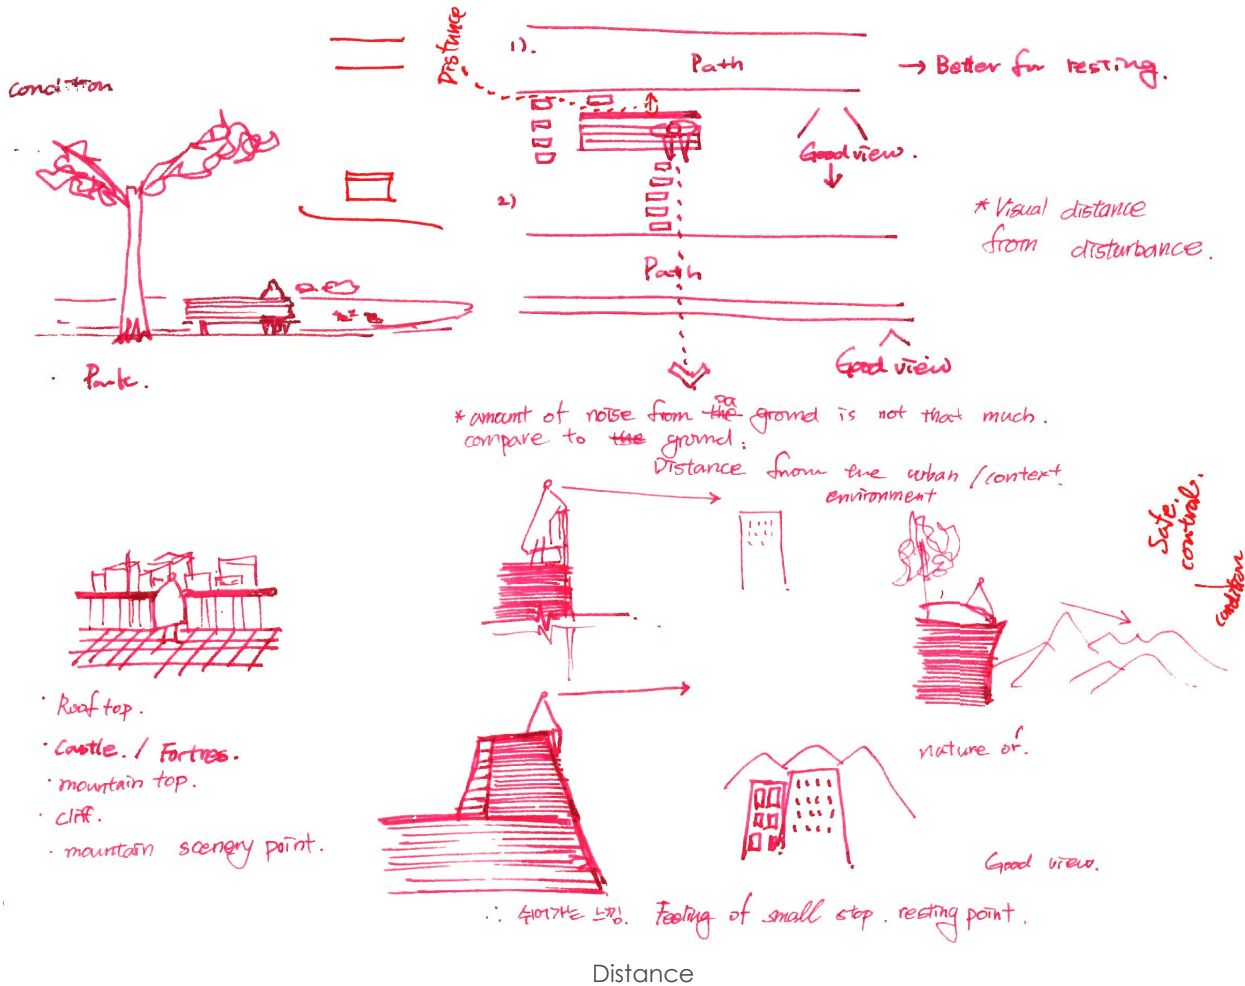 condition
Distance
1).
Path
→ Better for resting.
Good view.
2)
* Visual distance
from disturbance.
Path
Good view
· Park.
* amount of noise from the ground is not that much.
compare to the ground.
Distance from the urban / context.
environment
Safe.
control.
condition
· Roof top.
· Castle. / Fortres.
· mountain top.
· cliff.
· mountain scenery point.
nature or.
Good view.
∴ 쉬어가는 느낌. Feeling of small stop. resting point.
Distance